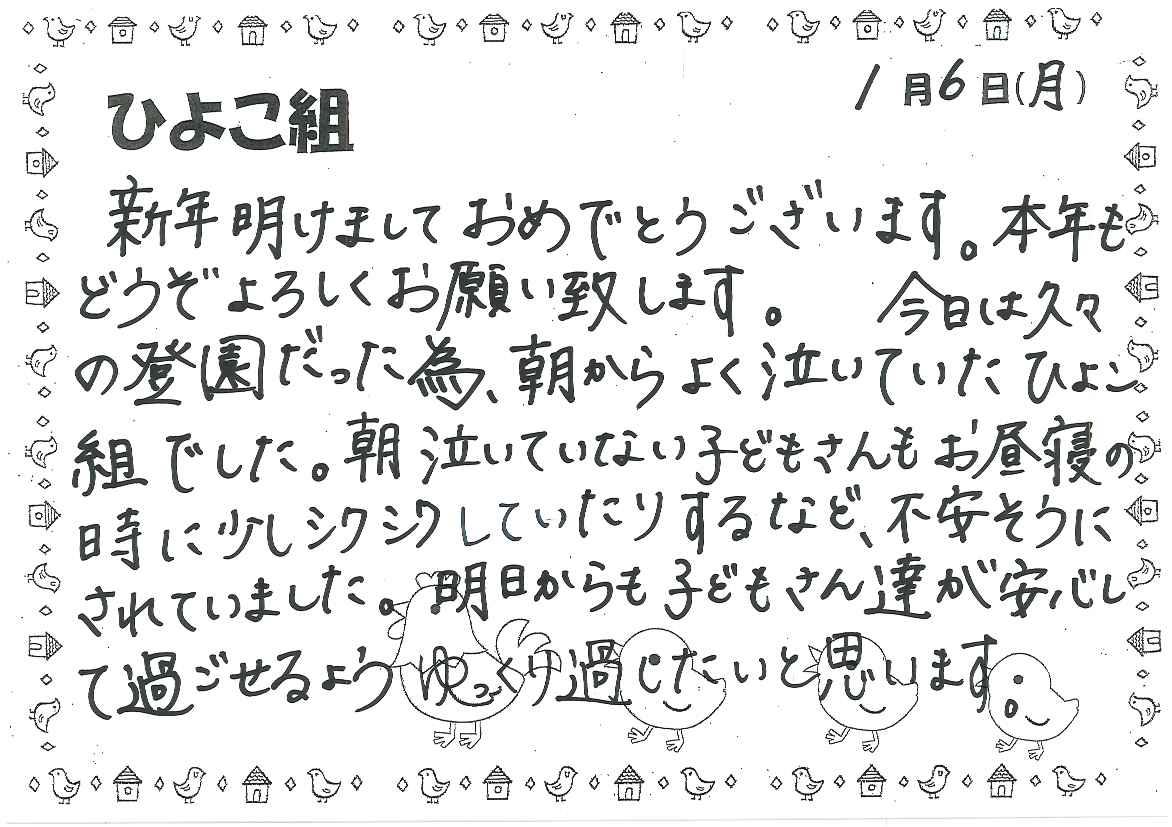 1月6日(月)
ひよこ組
新年明けましておめでとうございます。本年も
どうぞよろしくお願い致します。 今日は久々
の登園だった為、朝からよく泣いていたひよこ
組でした。朝泣いていない子どもさんもお昼寝の
時に少しシクシクしていたりするなど、不安そうに
されていました。明日からも子どもさん達が安心し
て過ごせるようゆっくり過したいと思います。